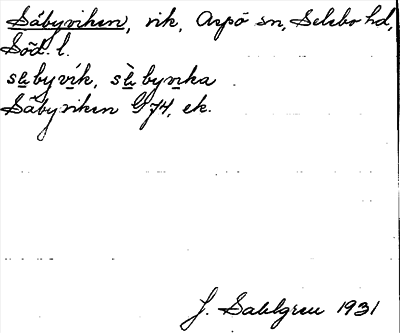 Såbyviken, vik, Aspö sn, Selebo hd,
Söd. l.
såbyvík, sàbyvika
Såbyviken G74, ek.
J. Sahlgren 1931